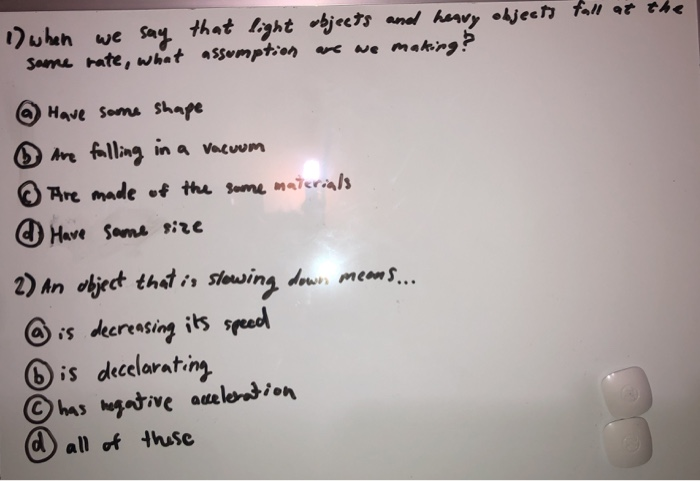 1) when we say that light objects and heavy objects fall at the
same rate, what assumption are we making?
a Have same shape
b Are falling in a vacuum
c Are made of the same materials
d Have same size
2) An object that is slowing down means...
a is decreasing its speed
b is decelarating
c has negative acceleration
d all of these